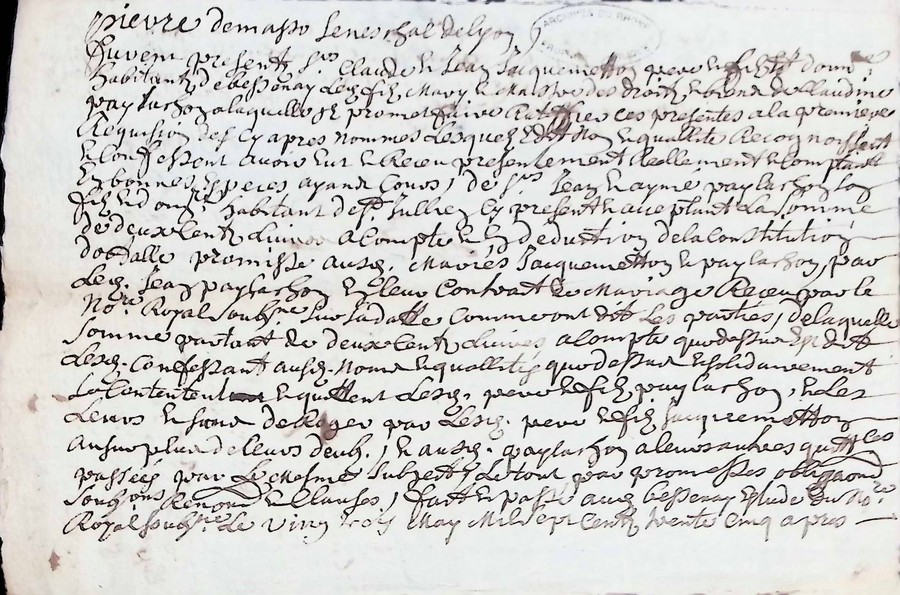 pierre demasso seneschal de lyon
furent presents Srs Claude & Jean Jacquemetton pere & fils
habitants de bessenay led. fils Mary & Maistre des droits & biens de Claudine
paylachon a laquelle promet faire Ratiffier ces presentes a la premiere
Requision des Cy apres nommes Lesquels dits Nom & quallite Recognoissent
& Confessent avoir eut & Receu presentement Reellement & Comptant
En bonnes Especes ayant Cours, de Srs Jean & aymé paylachon
fils habitant de St Jullien Cy present & aceptant La somme
de deux Cents Livres a Compte & En deduction de la Constitution
dotalle promisse ausd. Mariés Jacquemetton & paylachon, par
Led. Jean paylachon En leur Contrant de Mariage Receu par le
Nore Royal soubsne sur sa datte Comme ont dit Les parties, de laquelle
somme partant de deux Cents Livres a Compte que dessus
Lesd. Confessant ausd. Noms & quallités que dessus & solidairement
se Contentent & quittent Lesd. pere & fils paylachon, & les
Leurs par Lesd. pere & fils Jacquemetton
au surplus de leurs deub., & ausd. paylachon a leurs autres quittces
passées par Le Mesme subject, Le tout par promesses obligaons
soubons Renonons & Clauses, fait & passé aud. bessenay Estude du Nore
Royal soubsne Le Vingt trois May Mil sept Cents trente Cinq apres